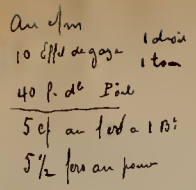 au c/m
10 Effel de gaze 1 droit
1 tors
40 f. dle Poil
5 cf au fers a 1 Bt
5 1/2 fers au pouce